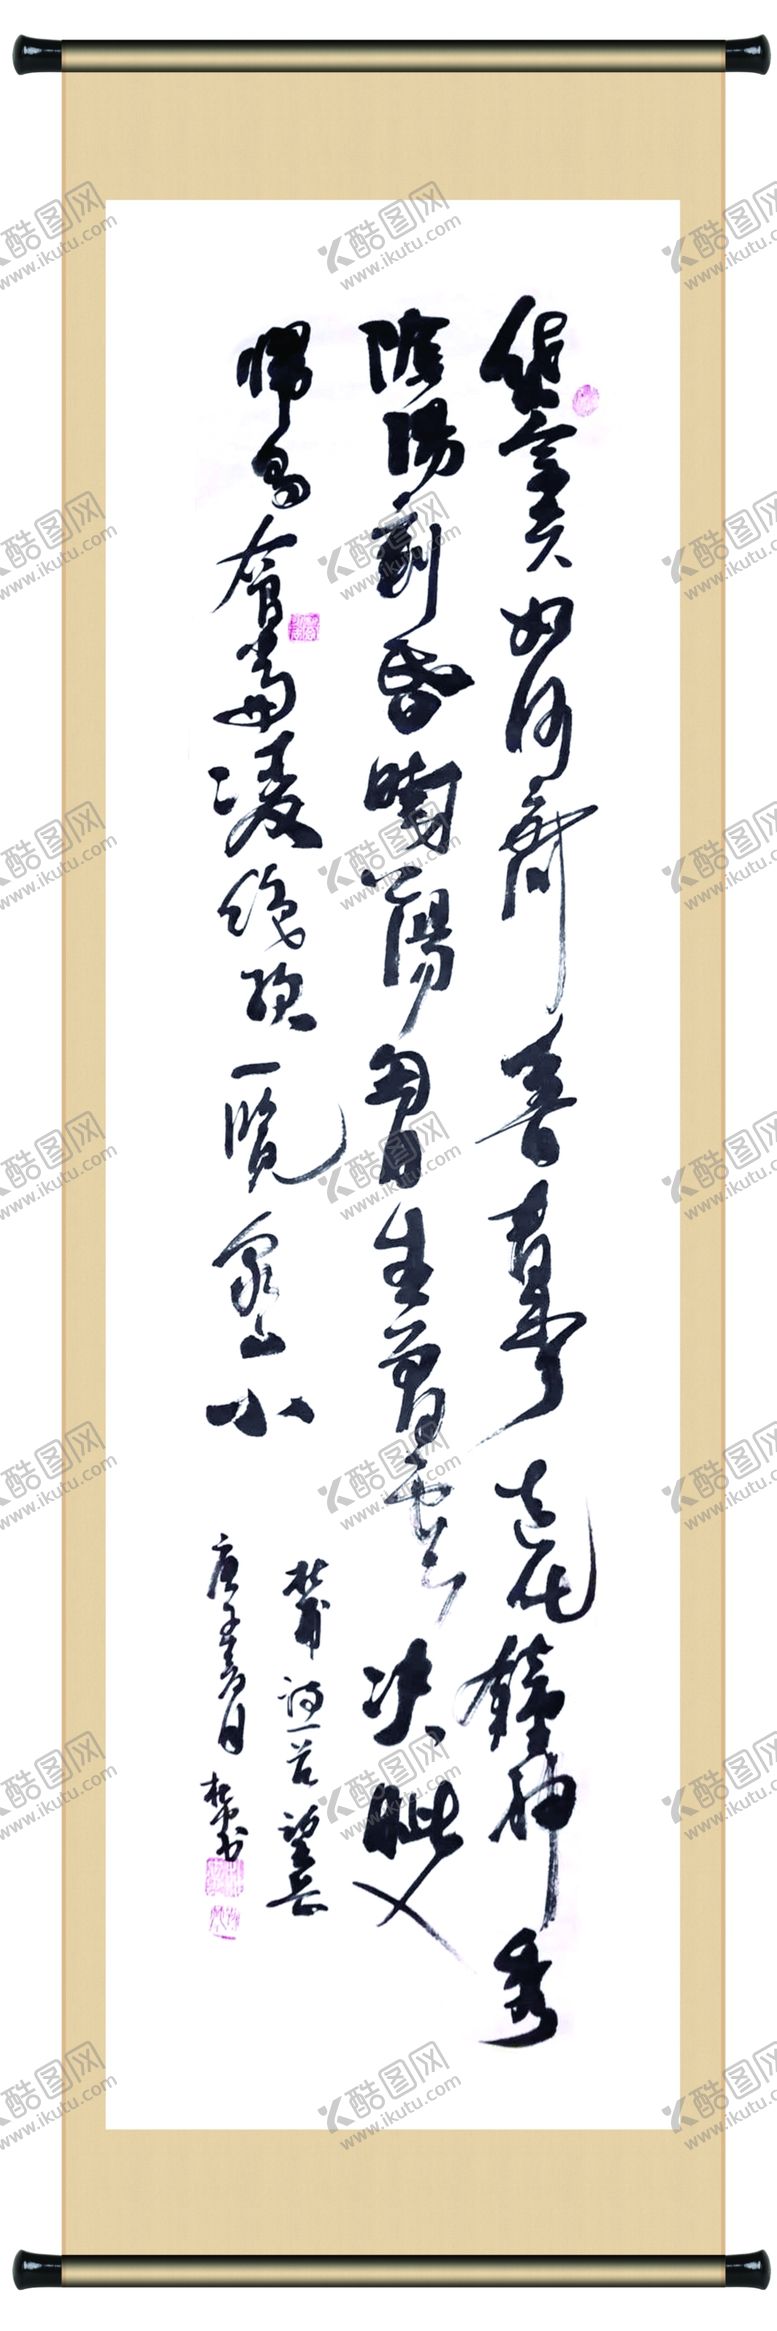 岱宗夫如何齊魯青未了造化鍾神秀
陰陽割昏曉蕩胸生曾雲決眦入
歸鳥會當凌絶頂一覽衆山小
杜甫詩一首望岳
庚子春月
書
酷图网
www.ikutu.com